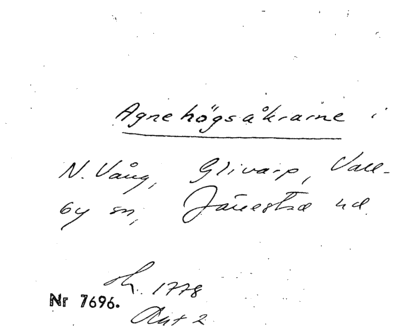 Agnehögsåkrarne i
N. Vång, Glivarp, Vall-
by sn, Järrestad hd.
sk. 1778
Akt 2
Nr 7696.